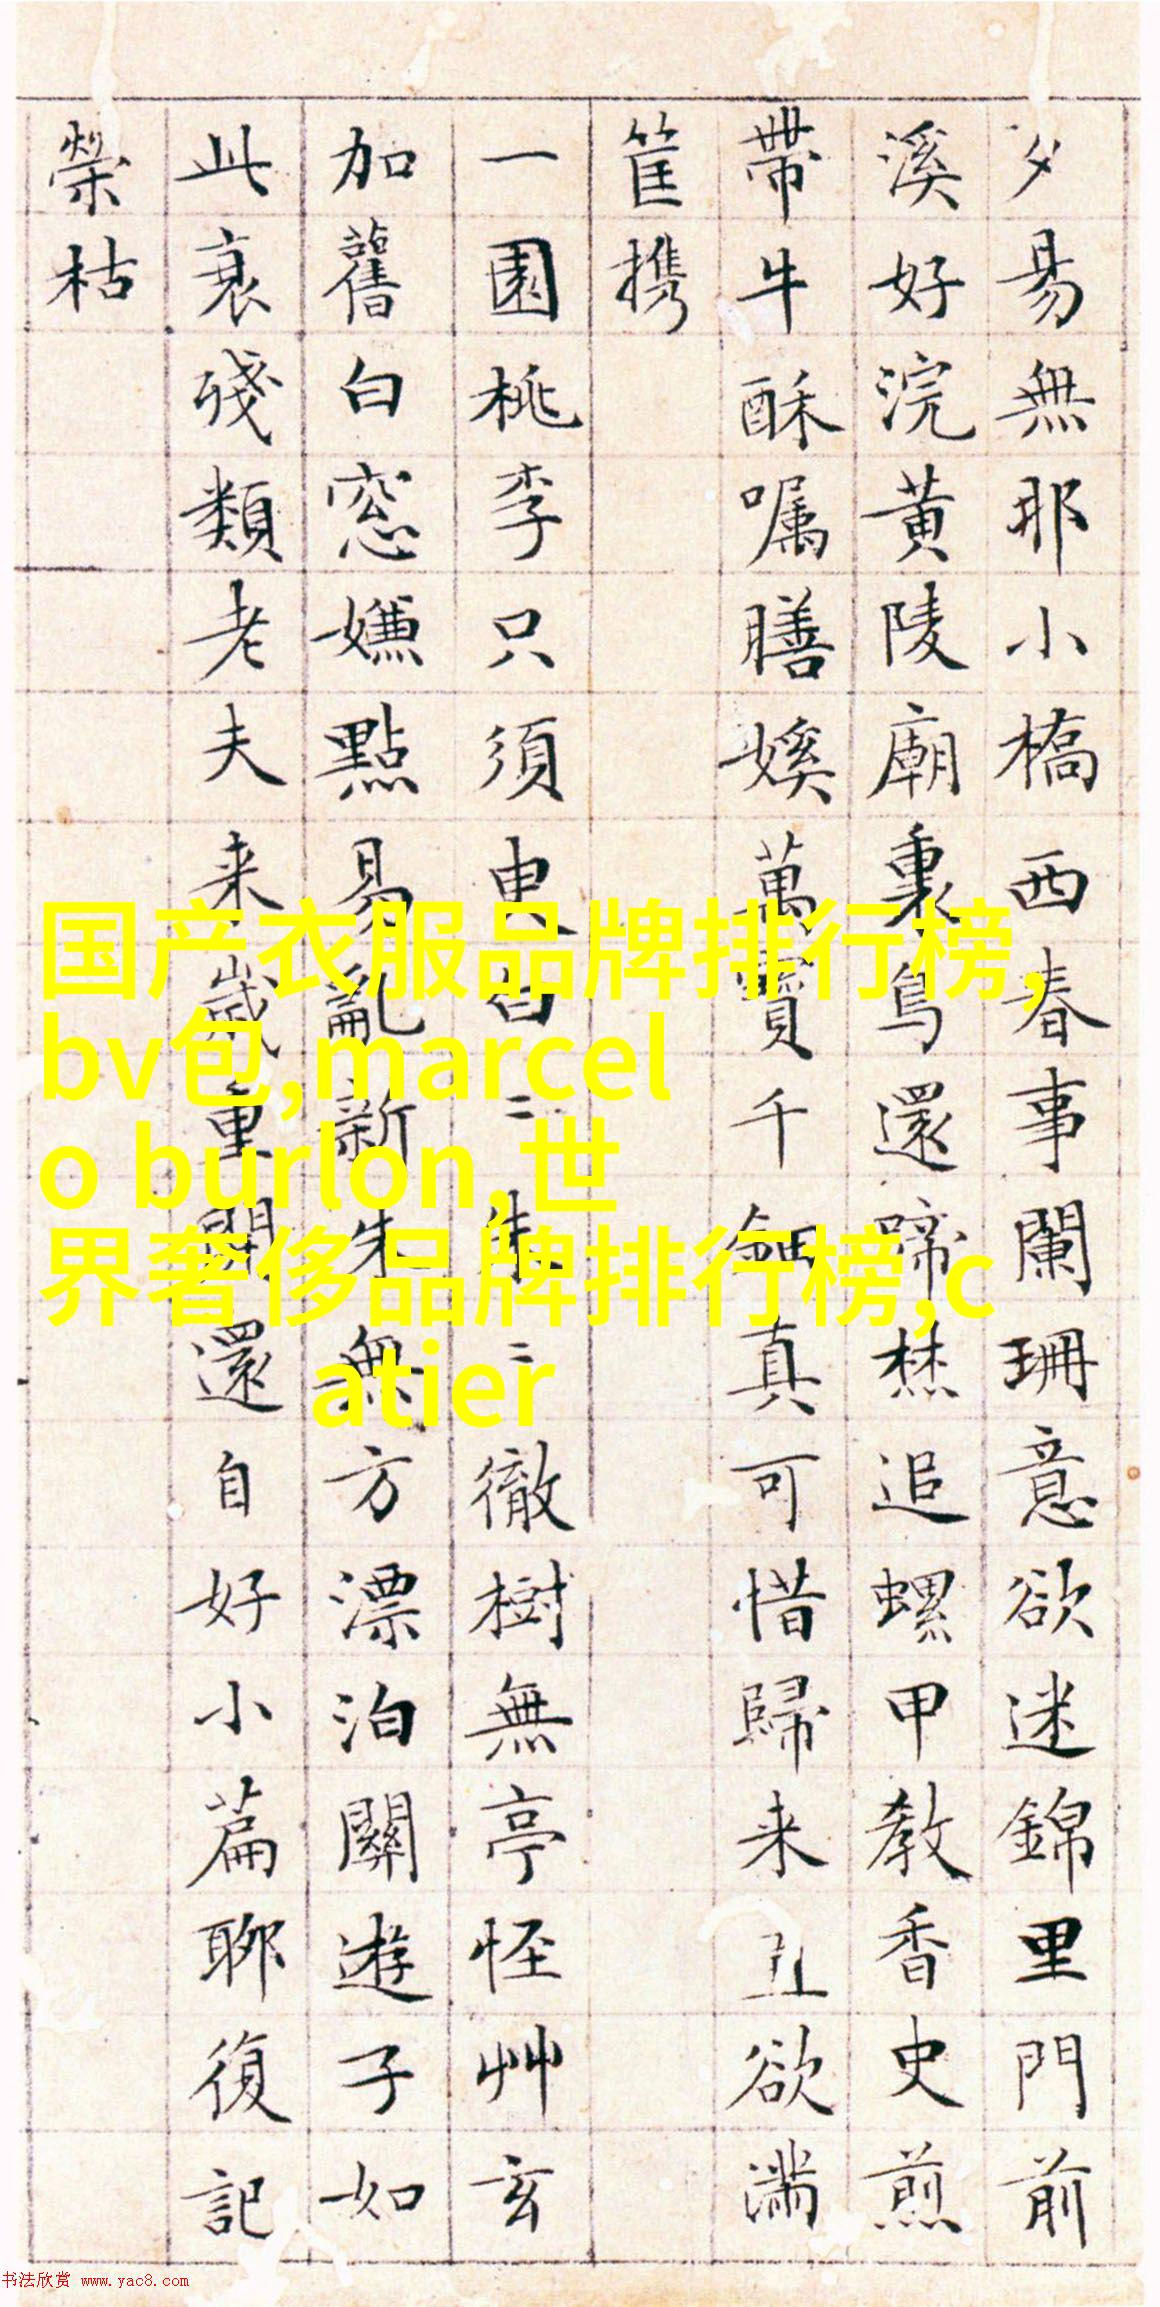 夕易無那小橋西春事闌珊意欲迷錦里門前
溪好浣黃陵廟裏鳥還啼焚追螺甲教香史煎
帶牛酥嘱膳娭萬寶千鈿真可惜歸来欲满
筐携
一園桃李只須臾白二朱二徹樹無亭怪艸玄
加舊白窓嫌點易亂新朱無方漂泊關遊子如
此衰殘類老夫来歲重開還自好小篇聊復記
榮枯
国产衣服品牌排行榜,
bv包,marcel
o burlon,世
界奢侈品牌排行榜,c
atier
书法欣赏 www.yac8.com